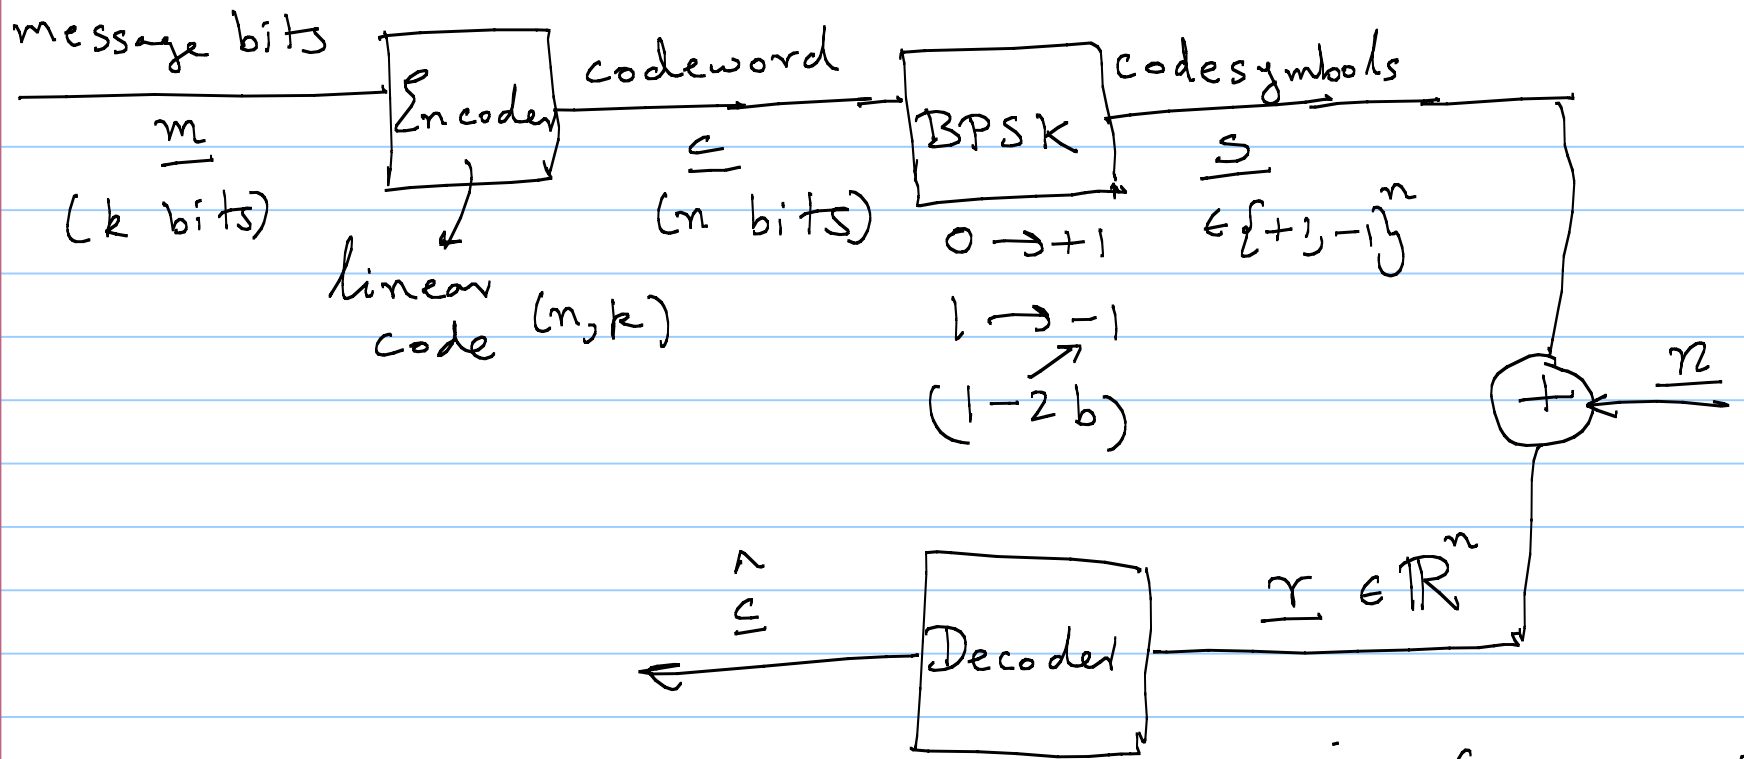 message bits
m
(k bits)
Encoder
linear
code (n,k)
codeword
c
(n bits)
BPSK
0 → +1
1 → -1
(1-2b)
codesymbols
s
∈{+1,-1}^n
+
n
r ∈ ℝ^n
Decoder
ĉ